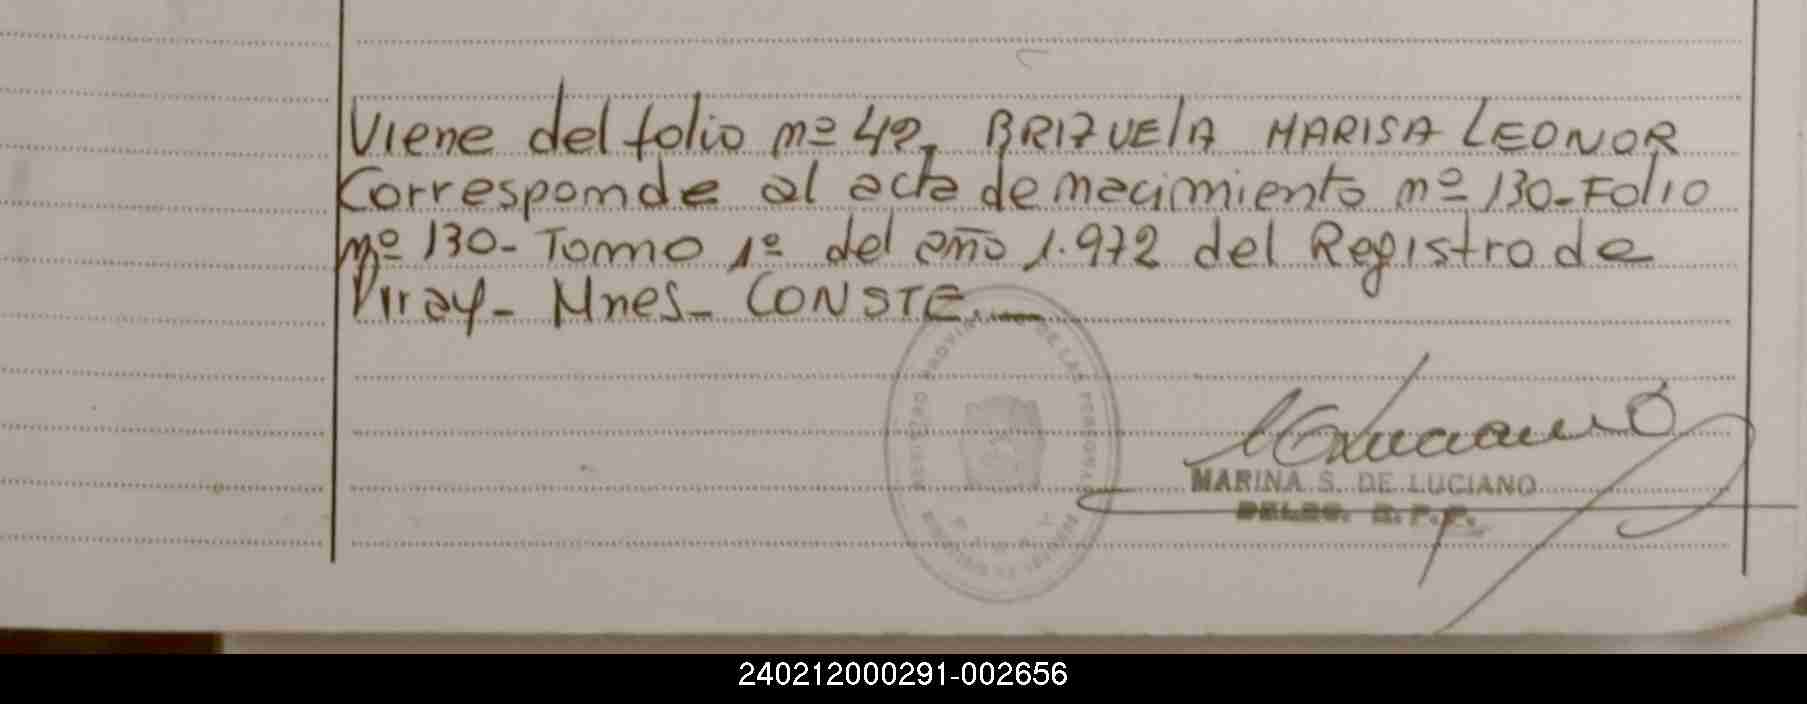 Viene del folio nº 42. BRIZUELA MARISA LEONOR
Corresponde al acta de nacimiento nº 130-Folio
nº 130-Tomo 1º del año 1.972 del Registro de
Piray- Mnes- CONSTE.—
REGISTRO PROVINCIAL DE LAS PERSONAS
MARINA S. DE LUCIANO
DELEG. R. P. P.
240212000291-002656